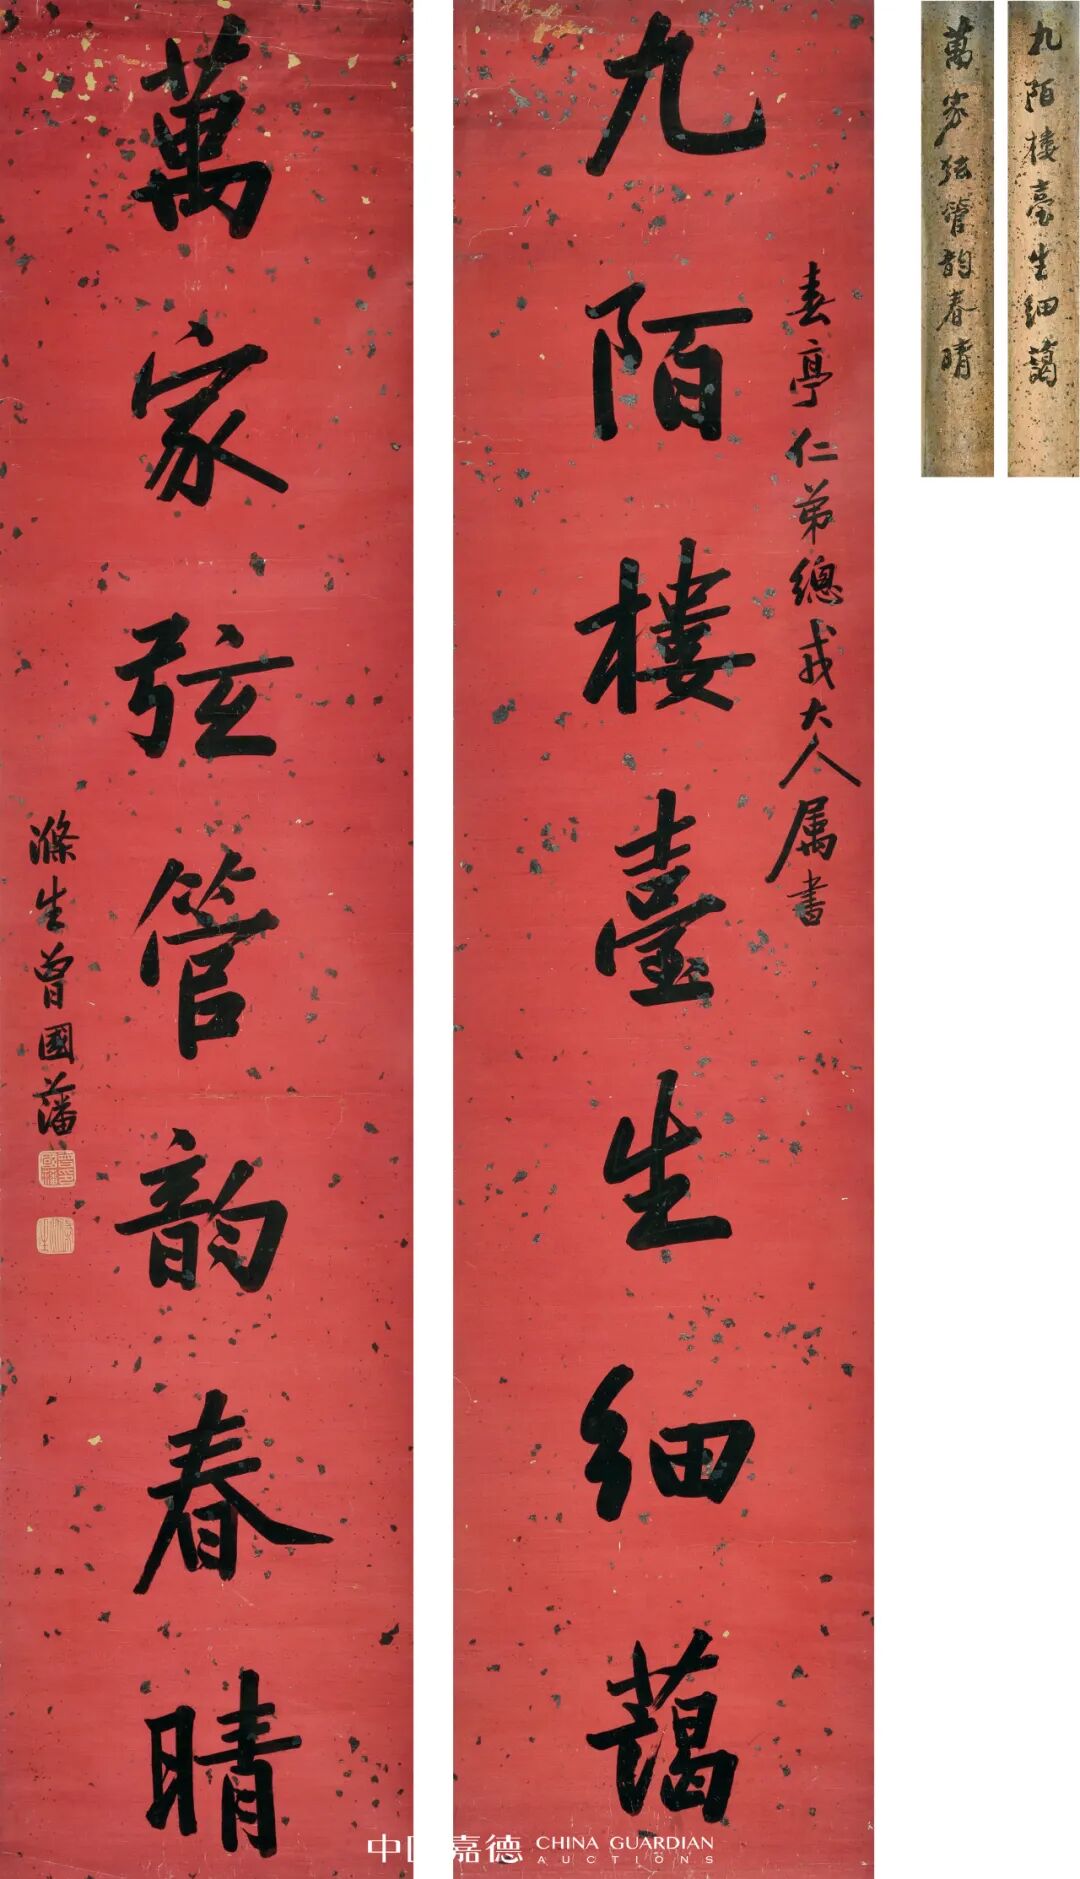 九陌樓臺生細藹
春亭仁弟總戎大人属書
萬家弦管韵春晴
滌生曾國藩
九陌樓臺生細藹
萬家弦管韵春晴
中国嘉德 CHINA GUARDIAN
AUCTIONS